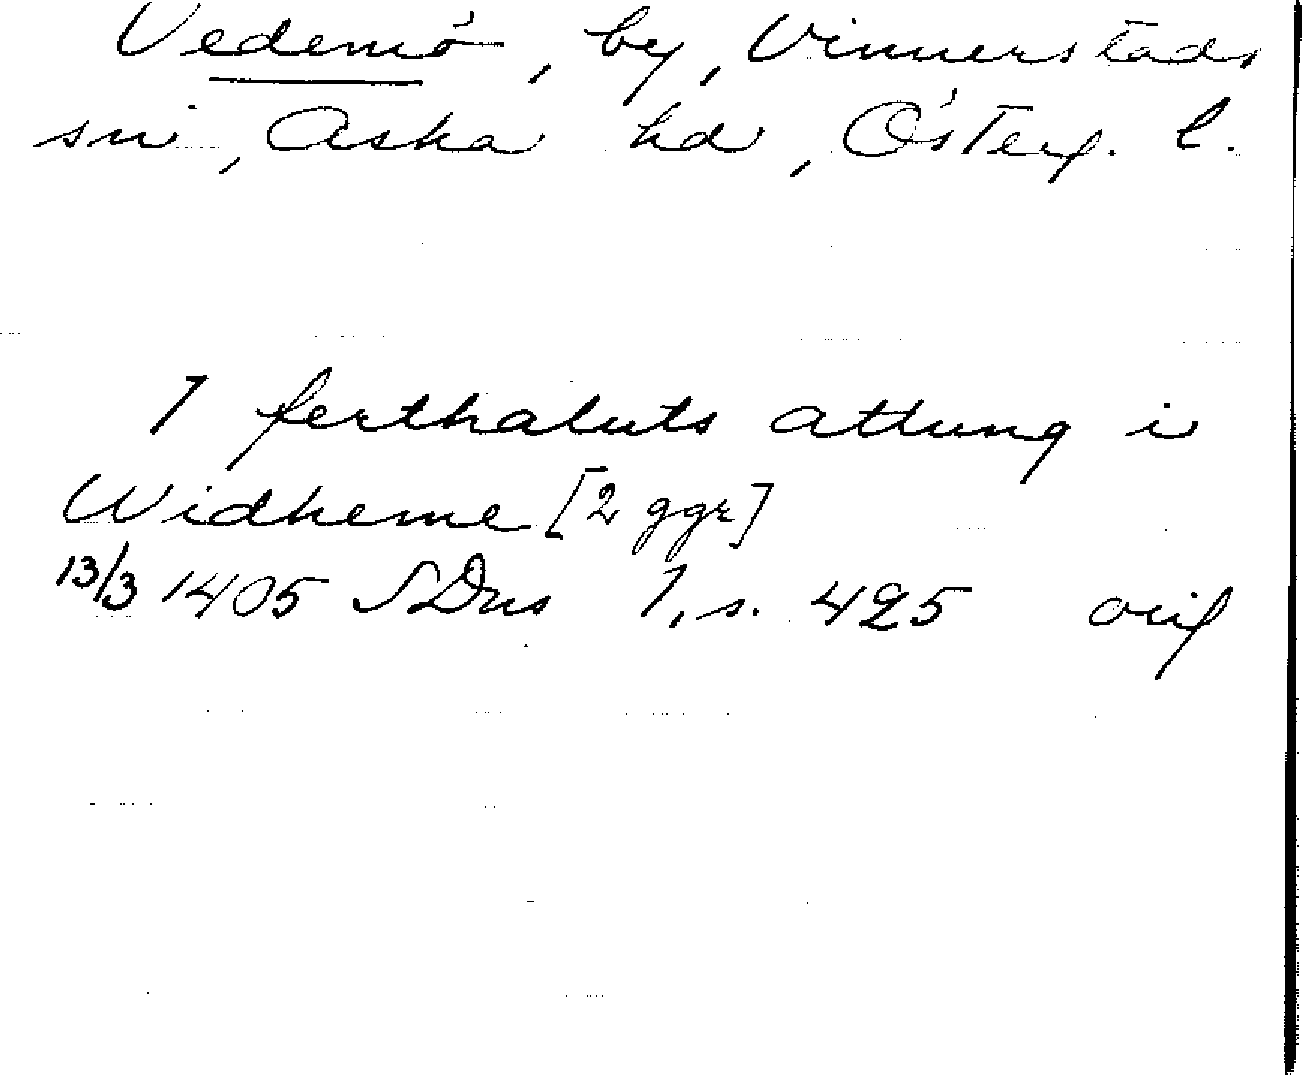 Vedemö, by, Vinnerstads
sn, Aska hd, Österg. l.
1 ferthaluts attung i
Widheme [2 ggr]
13/3 1405 SDns 1, s. 425 orig